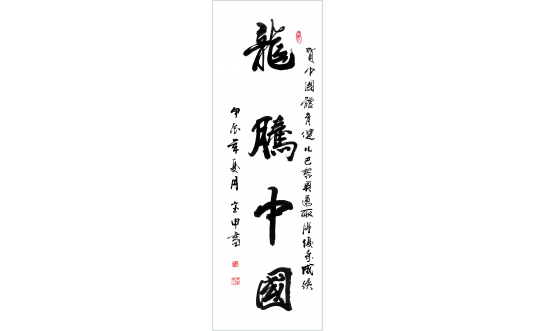 賀中國體育健儿巴黎奥運取得優成績
龍騰中國
甲辰年夏月 宝申書